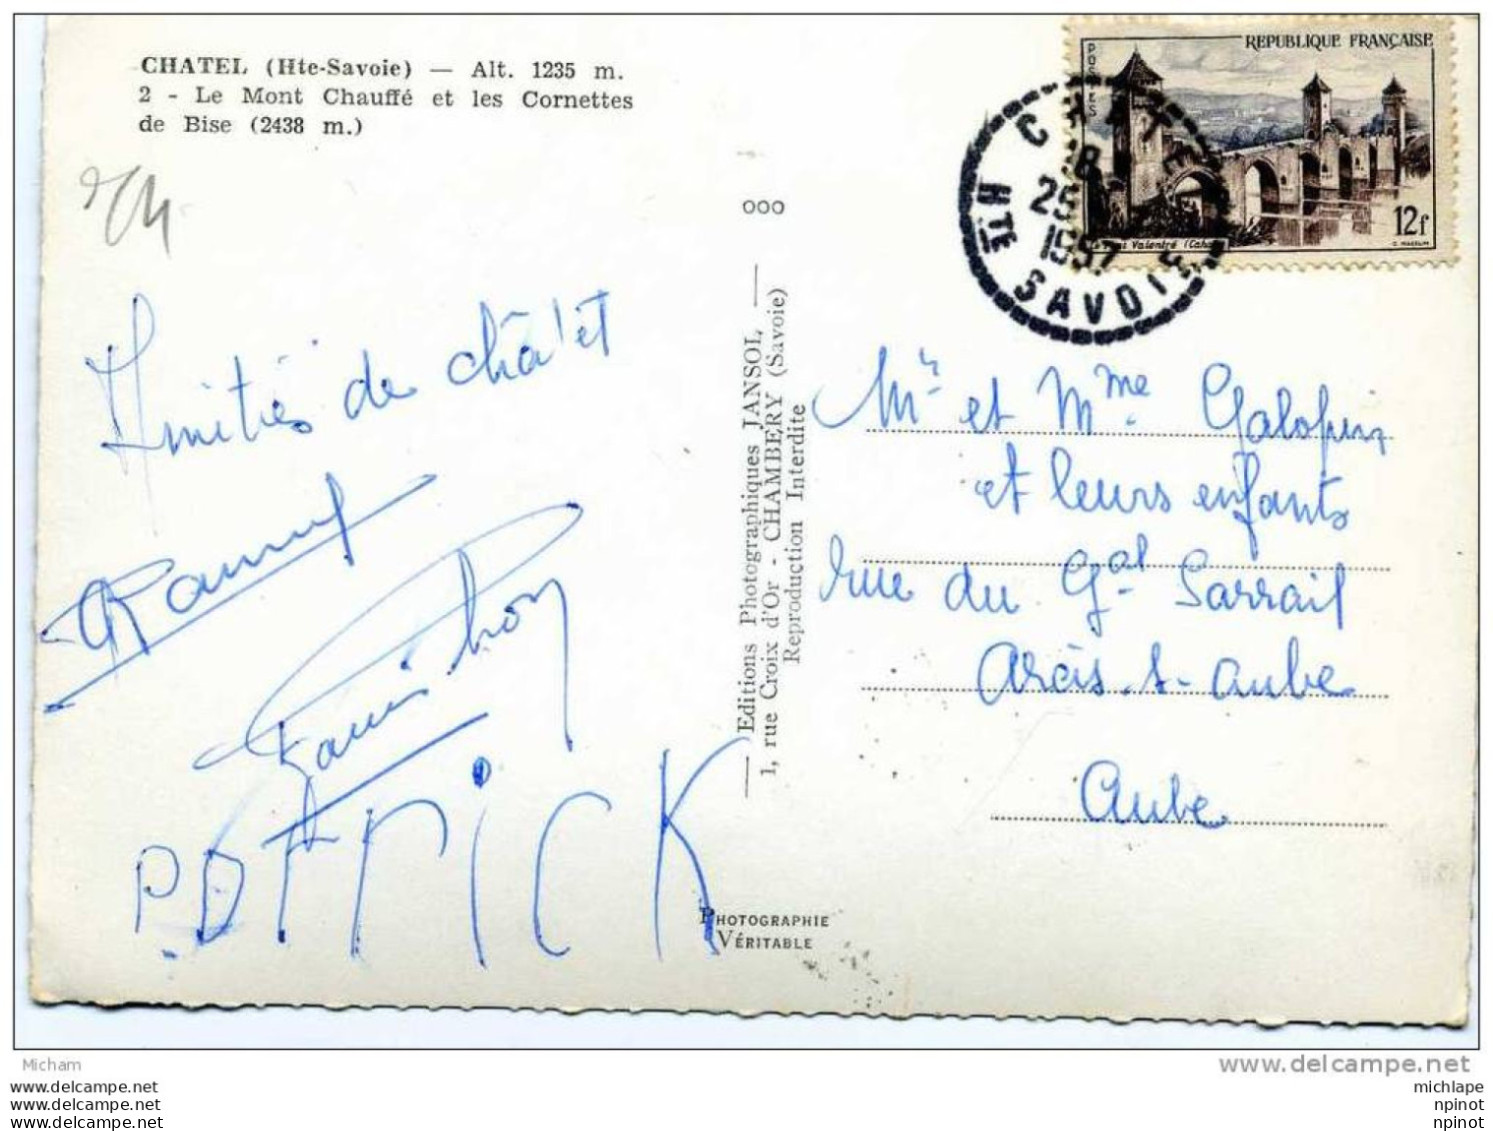 CHATEL (Hte-Savoie) — Alt. 1235 m.
2 - Le Mont Chauffé et les Cornettes
de Bise (2438 m.)
Amitiés de châtel
PATRICK
ooo
— Editions Photographiques JANSOL —
1, rue Croix d'Or - CHAMBERY (Savoie)
Reproduction Interdite
PHOTOGRAPHIE
VÉRITABLE
REPUBLIQUE FRANÇAISE
POSTES
12f
Le Pont Valentré (Cahors)
CHATEL
18
25
1957
HTE SAVOIE
Mr et Mme Galopin
et leurs enfants
rue du Gal Sarrail
Arcis-s-Aube
Aube
Micham
www.delcampe.net
www.delcampe.net
www.delcampe.net
www.delcampe.net
michlape
npinot
npinot